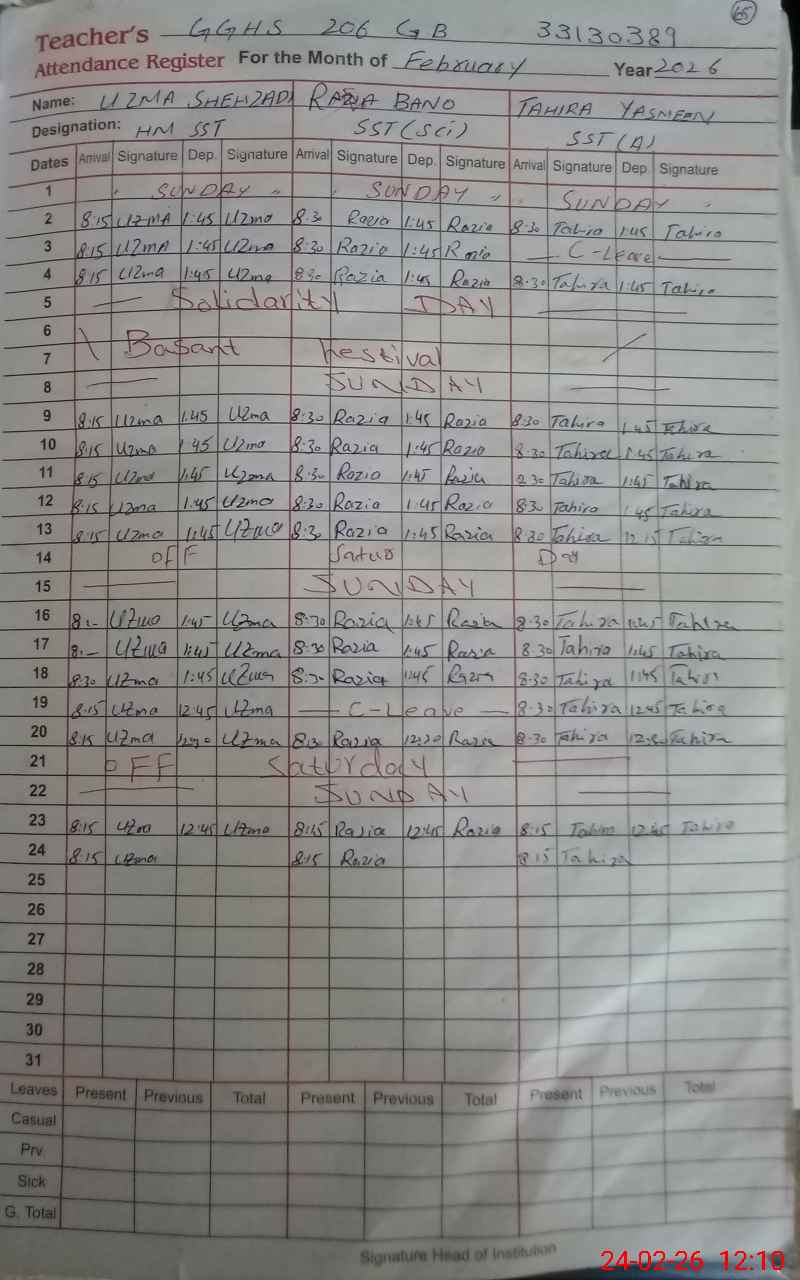 65
Teacher's GGHS 206 GB 33130389
Attendance Register For the Month of February Year 2026
Name: UZMA SHEHZADI RAZIA BANO TAHIRA YASMEEN
Designation: HM SST SST(Sci) SST(A)
Dates Arrival Signature Dep. Signature Arrival Signature Dep. Signature Arrival Signature Dep. Signature
1 SUNDAY SUNDAY SUNDAY
2 8:15 UZMA 1:45 Uzma 8:30 Razia 1:45 Razia 8:30 Tahira 1:45 Tahira
3 8:15 UZMA 1:45 Uzma 8:30 Razia 1:45 Razia C-Leave
4 8:15 Uzma 1:45 Uzma 8:30 Razia 1:45 Razia 8:30 Tahira 1:45 Tahira
5 Solidarity DAY
6
7 Basant Festival
8 SUNDAY
9 8:15 Uzma 1:45 Uzma 8:30 Razia 1:45 Razia 8:30 Tahira 1:45 Tahira
10 8:15 Uzma 1:45 Uzma 8:30 Razia 1:45 Razia 8:30 Tahira 1:45 Tahira
11 8:15 Uzma 1:45 Uzma 8:30 Razia 1:45 Razia Tahira 1:45 Tahira
12 8:15 Uzma 1:45 Uzma 8:30 Razia 1:45 Razia 8:30 Tahira 1:45 Tahira
13 8:15 Uzma 1:45 Uzma 8:30 Razia 1:45 Razia 8:30 Tahira 12:15 Tahira
14 OFF Day
15 SUNDAY
16 8:- Uzma 1:45 Uzma 8:30 Razia 1:45 Razia 8:30 Tahira 1:45 Tahira
17 8:- Uzma 1:45 Uzma 8:30 Razia 1:45 Razia 8:30 Tahira 1:45 Tahira
18 8:30 Uzma 1:45 Uzma 8:30 Razia 1:45 Razia 8:30 Tahira 1:45 Tahira
19 8:15 Uzma 12:45 Uzma C-Leave 8:30 Tahira 12:45 Tahira
20 8:15 Uzma 12:30 Uzma 8:30 Razia 12:30 Razia 8:30 Tahira Tahira
21 OFF Saturday
22 SUNDAY
23 8:15 Uzma 12:45 Uzma 8:15 Razia 12:45 Razia 8:15 Tahira 12:45 Tahira
24 8:15 Uzma 8:15 Razia 8:15 Tahira
25
26
27
28
29
30
31
Leaves Present Previous Total Present Previous Total Present Previous Total
Casual
Prv.
Sick
G. Total
Signature Head of Institution
24-02-26 12:10